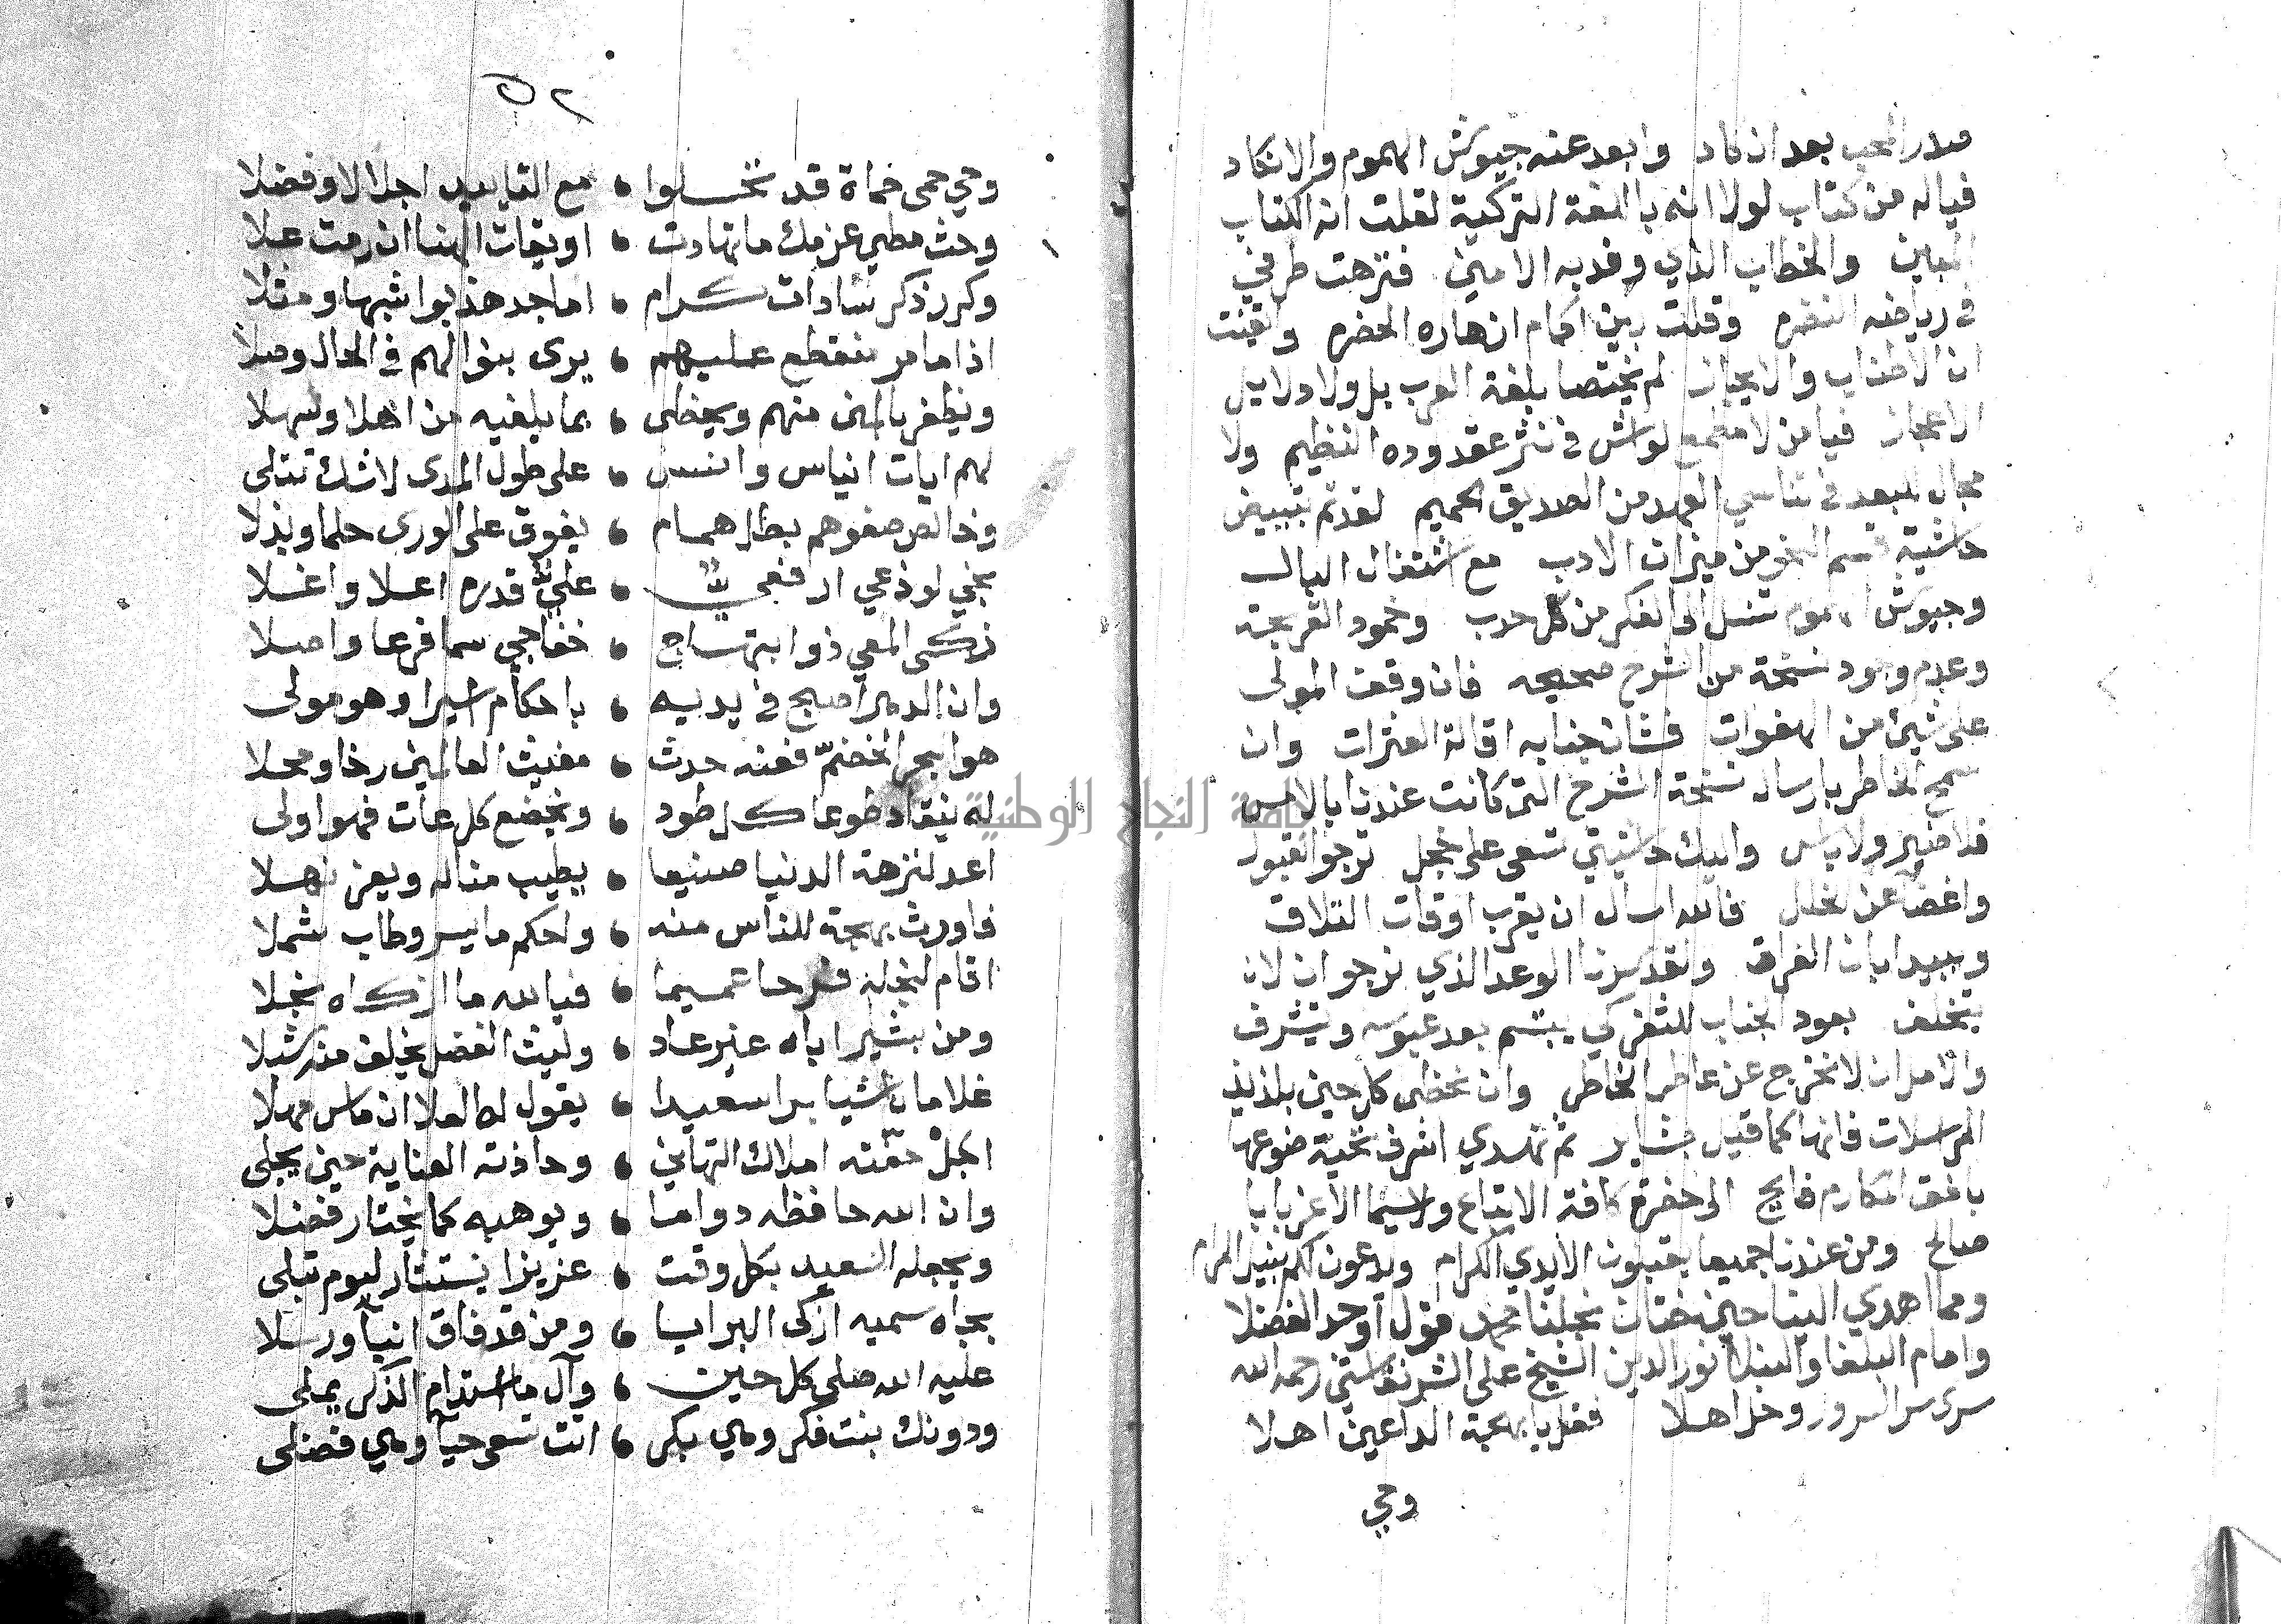 صدر المحب بعد ان كاد وابعد عنه جيوش الهموم والانكاد
فياله من كتاب لولا انه باللغة التركية لقلت انه الكتاب
المبين والخطاب الذي وفد به الامين فنزهت طرفي
في رياضه النضرم وقلت بين اكمام ازهاره الخضرم وايقنت
ان الاطناب والايجاز لم يختصا بلغة العرب بل ولا دلايل
الاعجاز فيا من لا مطمع لواش في نثر عقد وده النظيم ولا
مجال للبعد في تناسي العهد من الصديق الحميم لقد تم تبييض
حاشية قسم النحو من ميزان الادب مع اشتغال البال
وجيوش الهموم تنسل الى الفكر من كل حدب وخمود القريحة
وعدم وجود نسخة من الشرح صحيحه فان وقف المولى
على شيئ من الهفوات فشان جنابه اقالة العثرات وان
سمح الخاطر بارسال نسخة الشرح التي كانت عندنا بالامس
فلا ضير ولا باس واليك حاشيتي تسعى على خجل ترجو القبول
واغضا عن الخلل فالله اسال ان يقرب اوقات التلاق
ويبيد ابان الفراق ولقد سرنا الوعد الذي نرجو ان لا
يتخلف بعود الجناب للثغر كي يبتسم بعد عبوسه ويتشرف
والامل ان لا نخرج عن عاطر الخاطر وان نحظى كل حين بلذيذ
المراسلات فانها كما قيل ثم نهدي اشرف تحية ضوعها
بافق المكارم فايح الى حضرة كافة الاتباع ولا سيما الاعز بابا
صالح ومن عندنا جميعا يقبلون الايدي الكرام ويدعون لكم بنيل المرام
ومما اهدي الينا حين ختان نجلنا محمد قول اوحد الفضلا
وامام البلغا والنبلا نور الدين الشيخ علي الشرنفاسي رحمه الله
سرى سر السرور وحل اهلا فقل يا بهجة الداعين اهلا
وحي
٥٢
وحي حمى حماة قد تحلوا ، مع التاييد اجلالا وفضلا
وحث مطي عزمك ما تهادت ، اويقات الهنا ان رمت علا
وكرر ذكر سادات كرام ، اماجد هذبوا شبها ومثلا
اذا ما مر منقطع عليهم ، يرى بنوالهم في الحال وصلا
ويظفر بالمنى منهم ويحظى ، بما يلفيه من اهلا وسهلا
لهم ايات ايناس وانس ، على طول المدى لا شك تتلى
وخالص صفوهم بطل همام ، يفوق على الورى حلما وبذلا
سخي لوذعي اريحي ، علي قدره اعلا واغلا
ذكي المعي ذو ابتهاج ، خفاجي سما فرعا واصلا
وان الدهر اصبح في يديه ، باحكام اسيرا وهو مولى
هو البحر الخضم فعنه حدث ، مغيث العالمين رخا ومحلا
له ينقاد طوعا كل طود ، ويخضع كل عات فهو اولى
اعد لنزهة الدنيا صنيعا ، يطيب مناله ويعز نهلا
فاورث بهجة للناس منه ، واحكم ما يسر وطاب شملا
اقام لنجله فرحا عميما ، فيالله ما ازكاه نجلا
ومن بشير اباه غير عاد ، وليث الفضل يخلف منه شبلا
غلاما ناشيا برا سعيدا ، يقول له العلا ان ماس مهلا
اجل حفته املاك التهاني ، وحاذته العناية حين يجلى
وان الله حافظه دواما ، ويوهبه كما يختار فضلا
ويجعله السعيد بكل وقت ، عزيزا يستشار ليوم تبلى
بجاه سميه ازكى البرايا ، ومن قد فاق انبيا ورسلا
عليه الله صلى كل حين ، وآل ما استدام الذكر يملى
ودونك بنت فكر وهي بكر ، اتت تسعى حيا وهي فضلى
جامعة النجاح الوطنية